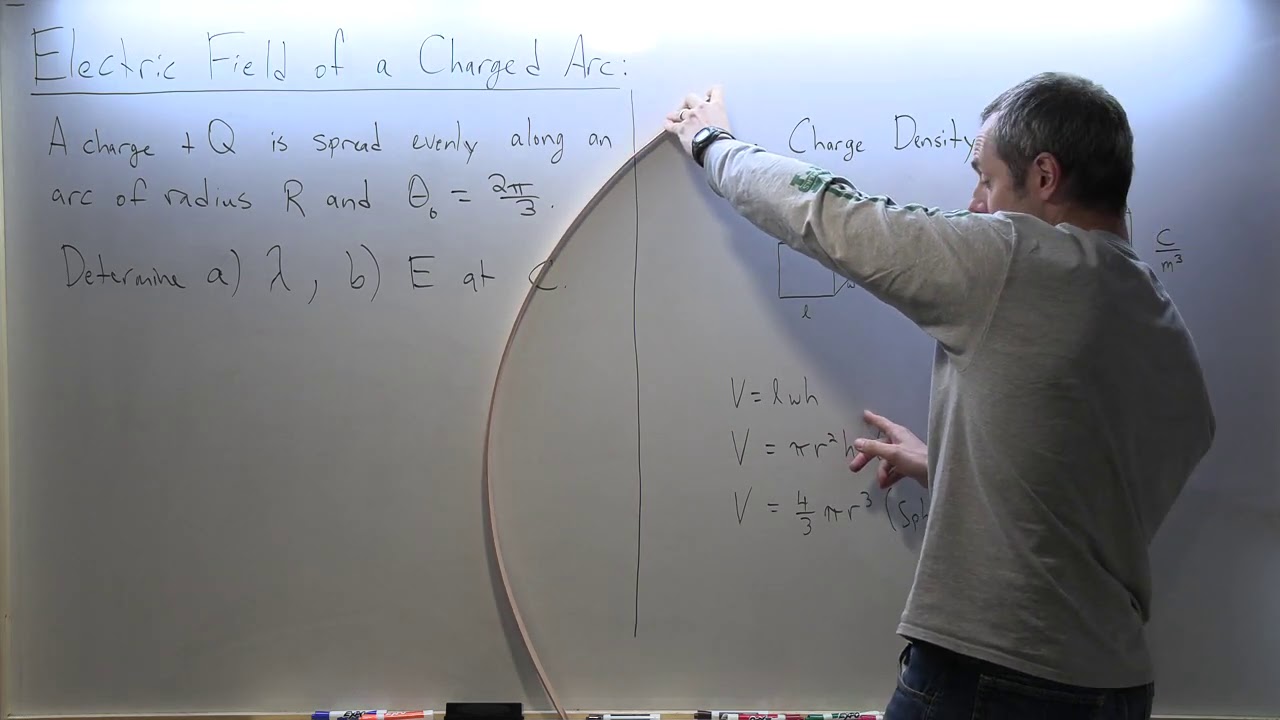 Electric Field of a Charged Arc:
A charge +Q is spread evenly along an
arc of radius R and θ₀ = 2π/3.
Determine a) λ, b) E at C.
Charge Density
C/m³
l
w
V = lwh
V = πr²h
V = 4/3 πr³ (
EXPO
EXPO